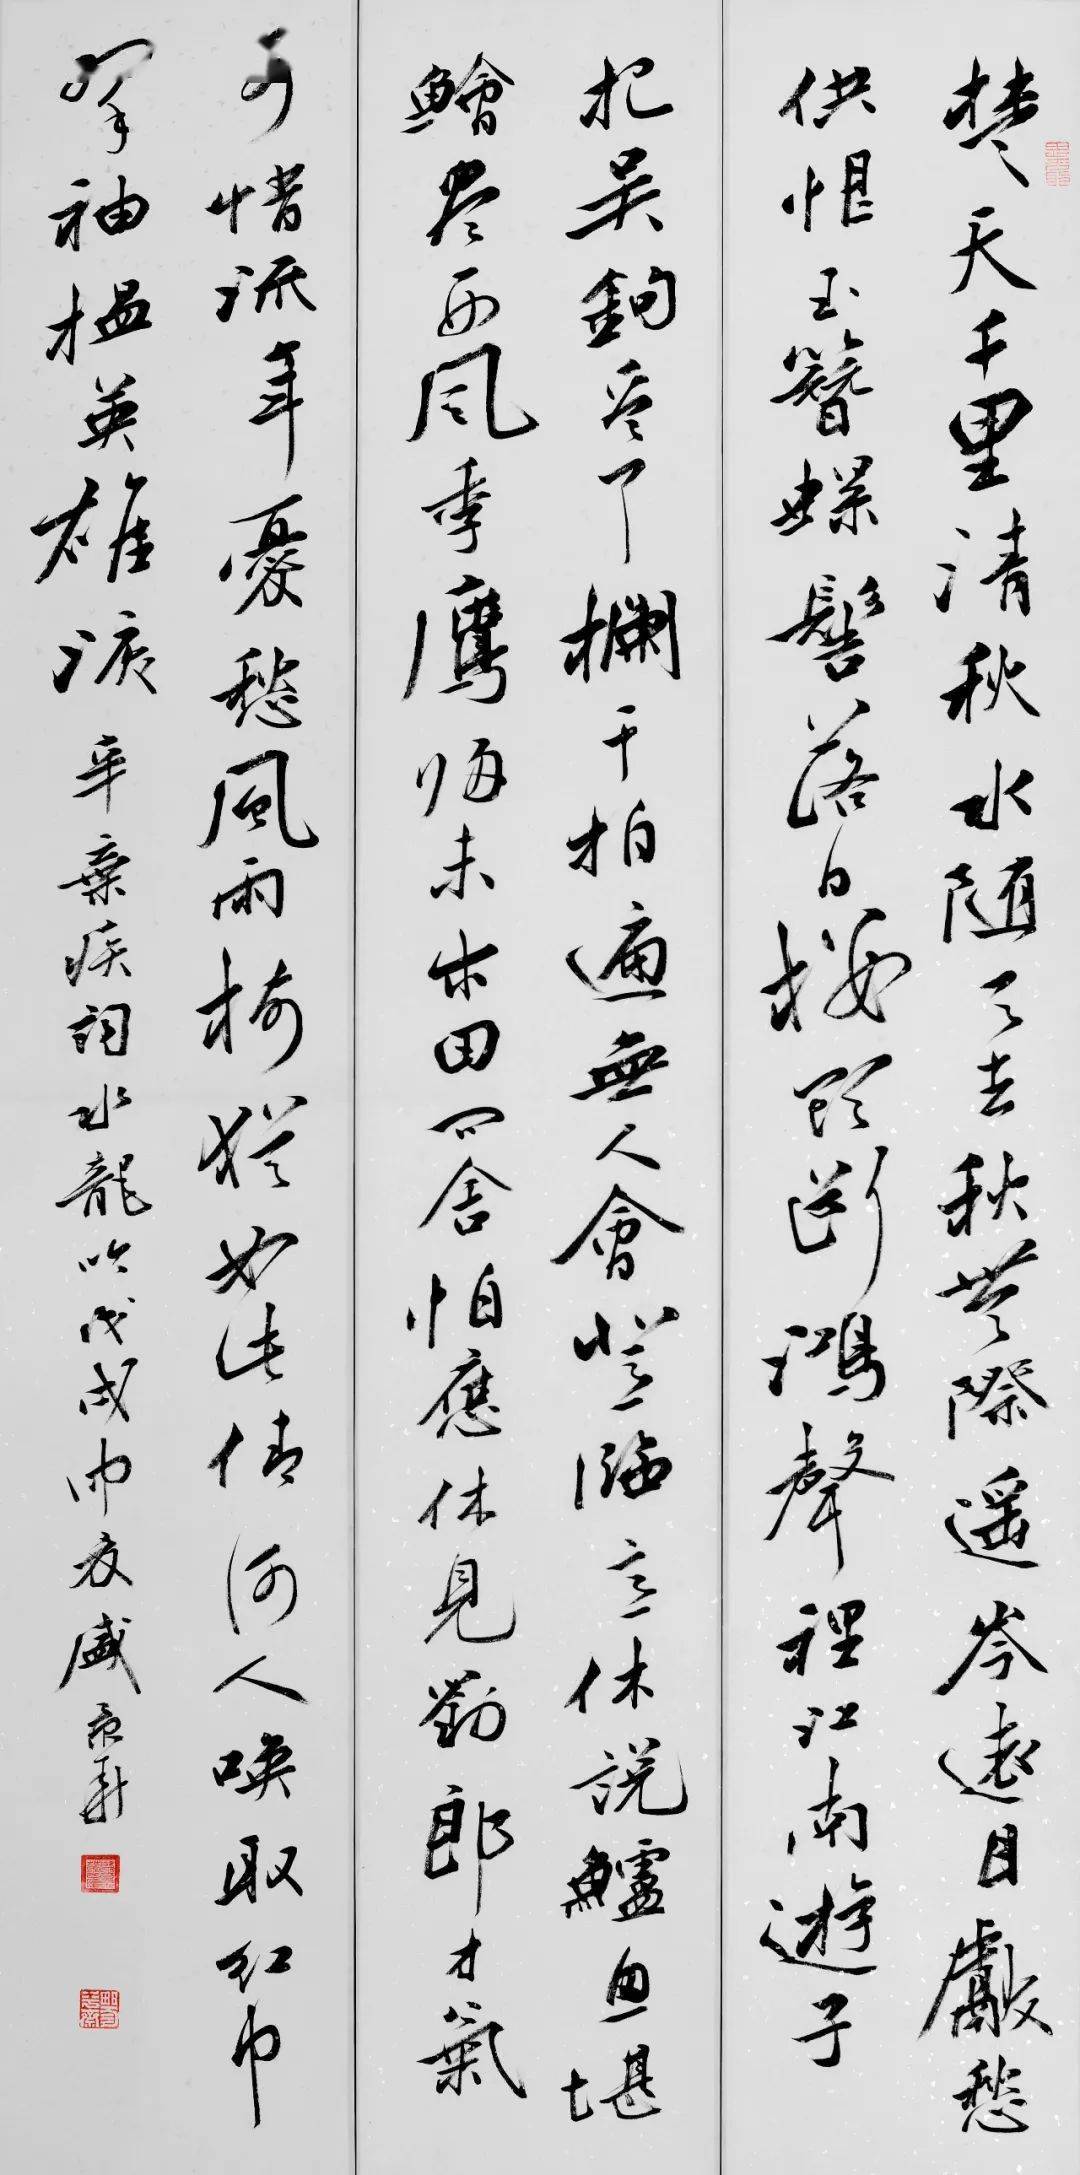 楚天千里清秋水随天去秋無際遥岑遠目獻愁
供恨玉簪螺髻落日楼頭断鴻聲裡江南遊子
把吴鉤看了欄干拍遍無人會登臨意休説鱸魚堪
鱠盡西風季鹰归未求田問舍怕應休見劉郎才氣
可惜流年憂愁風雨樹猶如此倩何人唤取红巾
翠袖揾英雄淚辛棄疾詞水龍吟戊戌仲夏盛